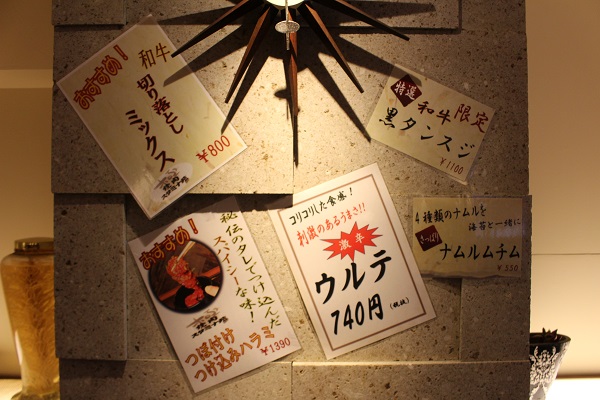 おすすめ!
和牛
切り落とし
ミックス
¥800
特選
和牛限定
黒タンスジ
¥1100
おすすめ!
秘伝のタレでつけ込んだ
スパイシーな味!
つぼ付け
つけ込みハラミ
¥1390
コリコリした食感!
刺激のあるうまさ!!
激辛
ウルテ
740円(税抜)
4種類のナムルを
海苔と一緒に
さっぱり
ナムルムチム
¥550